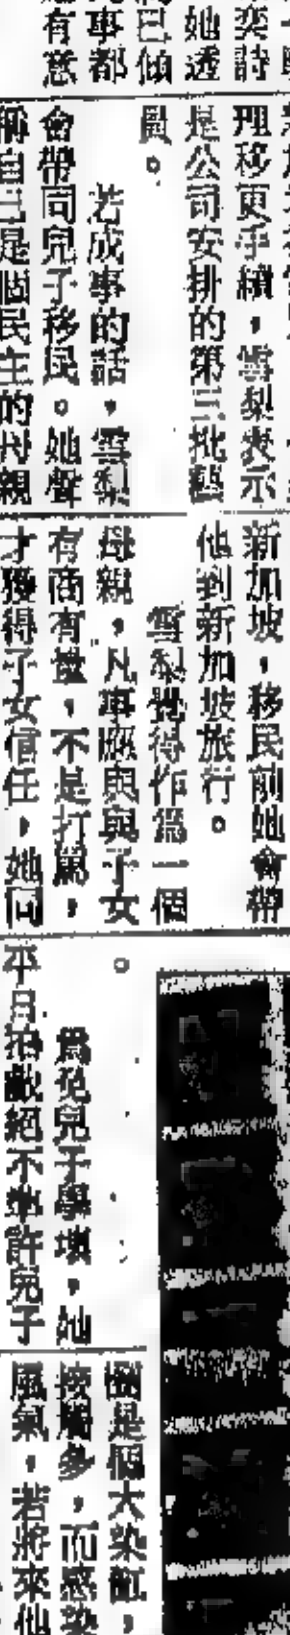 奕詩
她透
事都
有意
理移更手續，雪梨表示
是公司安排的第三批藝
員。
若成事的話，雪梨
會帶同兒子移民。她聲
稱自己是個民主的母親
新加坡，移民前她會帶
他到新加坡旅行。
雪梨覺得作為一個
母親，凡事應與與子女
有商有量，不是打罵，
才獲得子女信任，她同
。
為免兒子學壞，她
平日拍戲絕不準許兒子
圈是個大染缸，
接觸多，而感染
風氣，若將來他